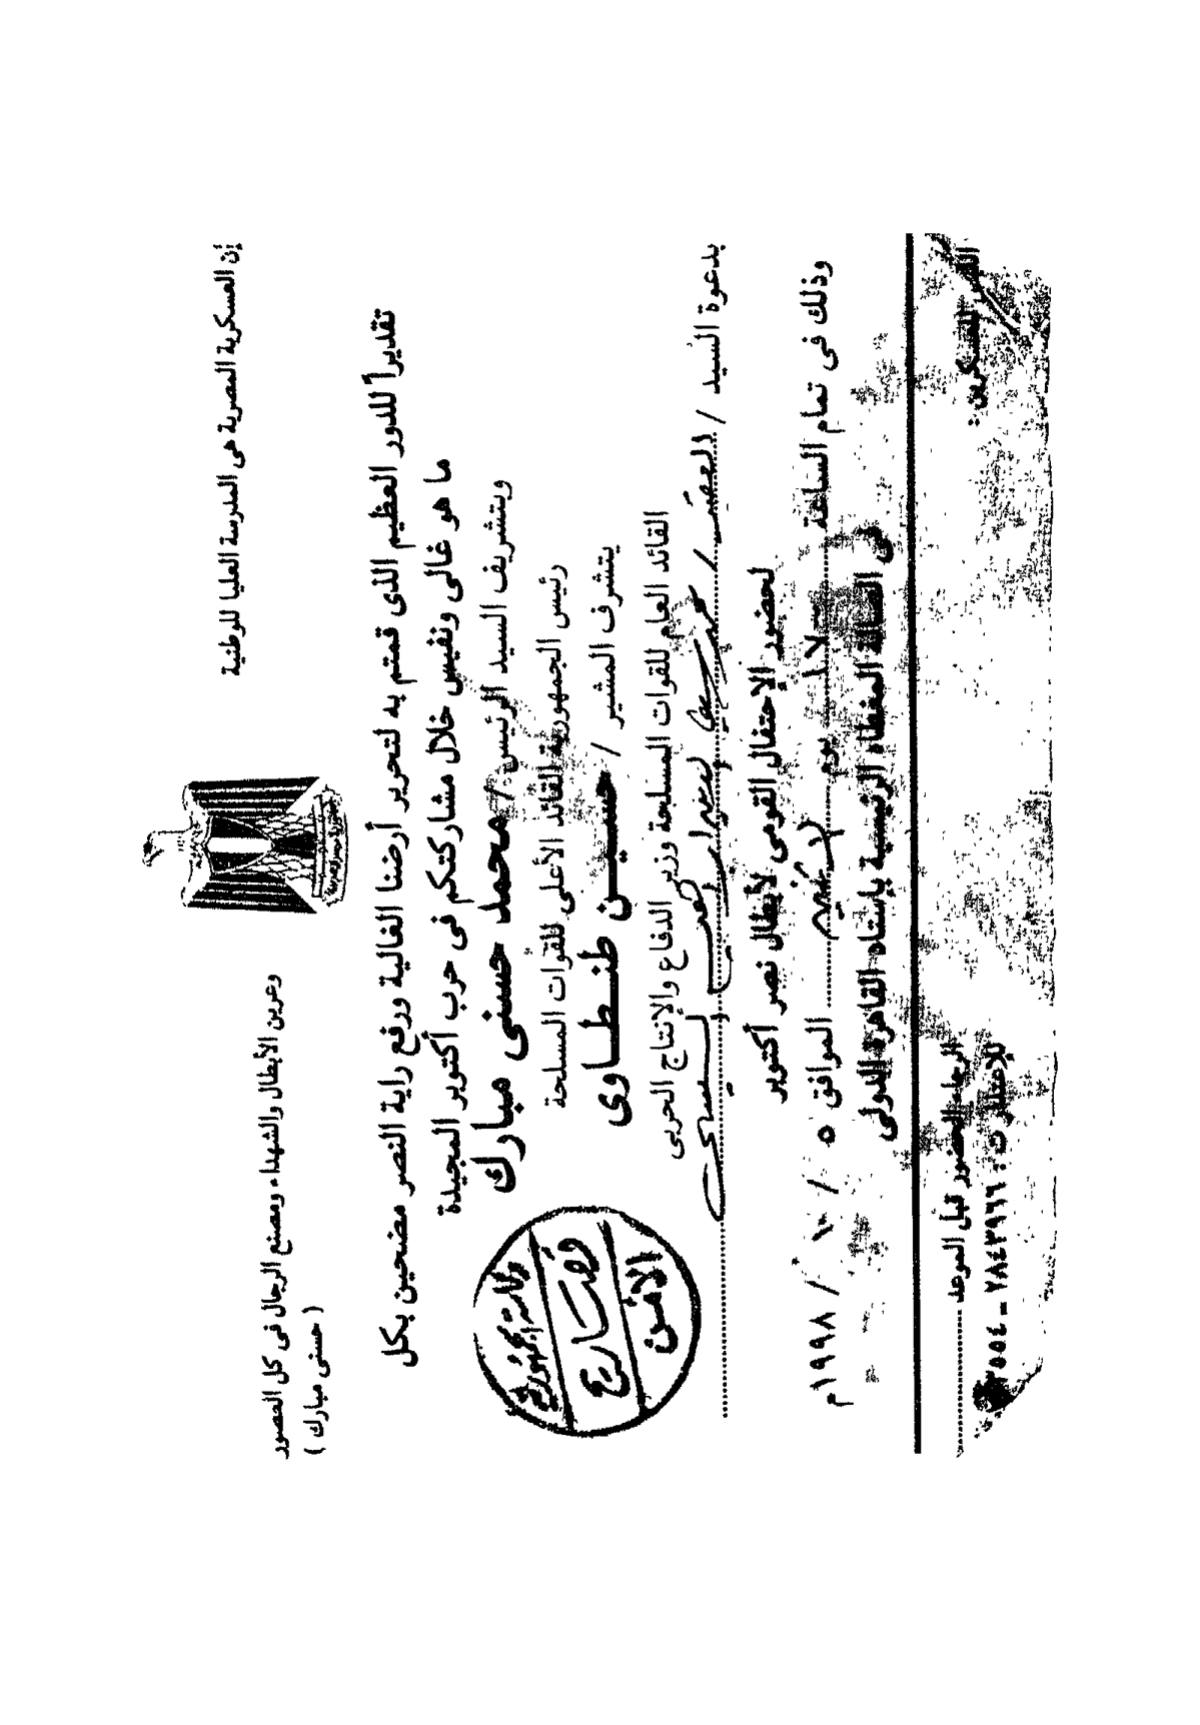 إن العسكرية المصرية هى المدرسة العليا للوطنية
وعرين الأبطال والشهداء ومصنع الرجال فى كل العصور
( حسنى مبارك )
تقديراً للدور العظيم الذى قمتم به لتحرير أرضنا الغالية ورفع راية النصر مضحين بكل
ما هو غالى ونفيس خلال مشاركتكم فى حرب أكتوبر المجيدة
وبتشريف السيد الرئيس / محمد حسنى مبارك
رئيس الجمهورية القائد الأعلى للقوات المسلحة
يتشرف المشير / حسين طنطاوى
القائد العام للقوات المسلحة وزير الدفاع والإنتاج الحربى
بدعوة السيد /
لحضور الإحتفال القومى لأبطال نصر أكتوبر
وذلك فى تمام الساعة يوم الموافق ٥ / ١٠ / ١٩٩٨م
فى الصالة المغطاه الرئيسية بإستاد القاهرة الدولى
الرجاء الحضور قبل الموعد
للإعتذار ت :
رئاسة الجمهورية
الأمن